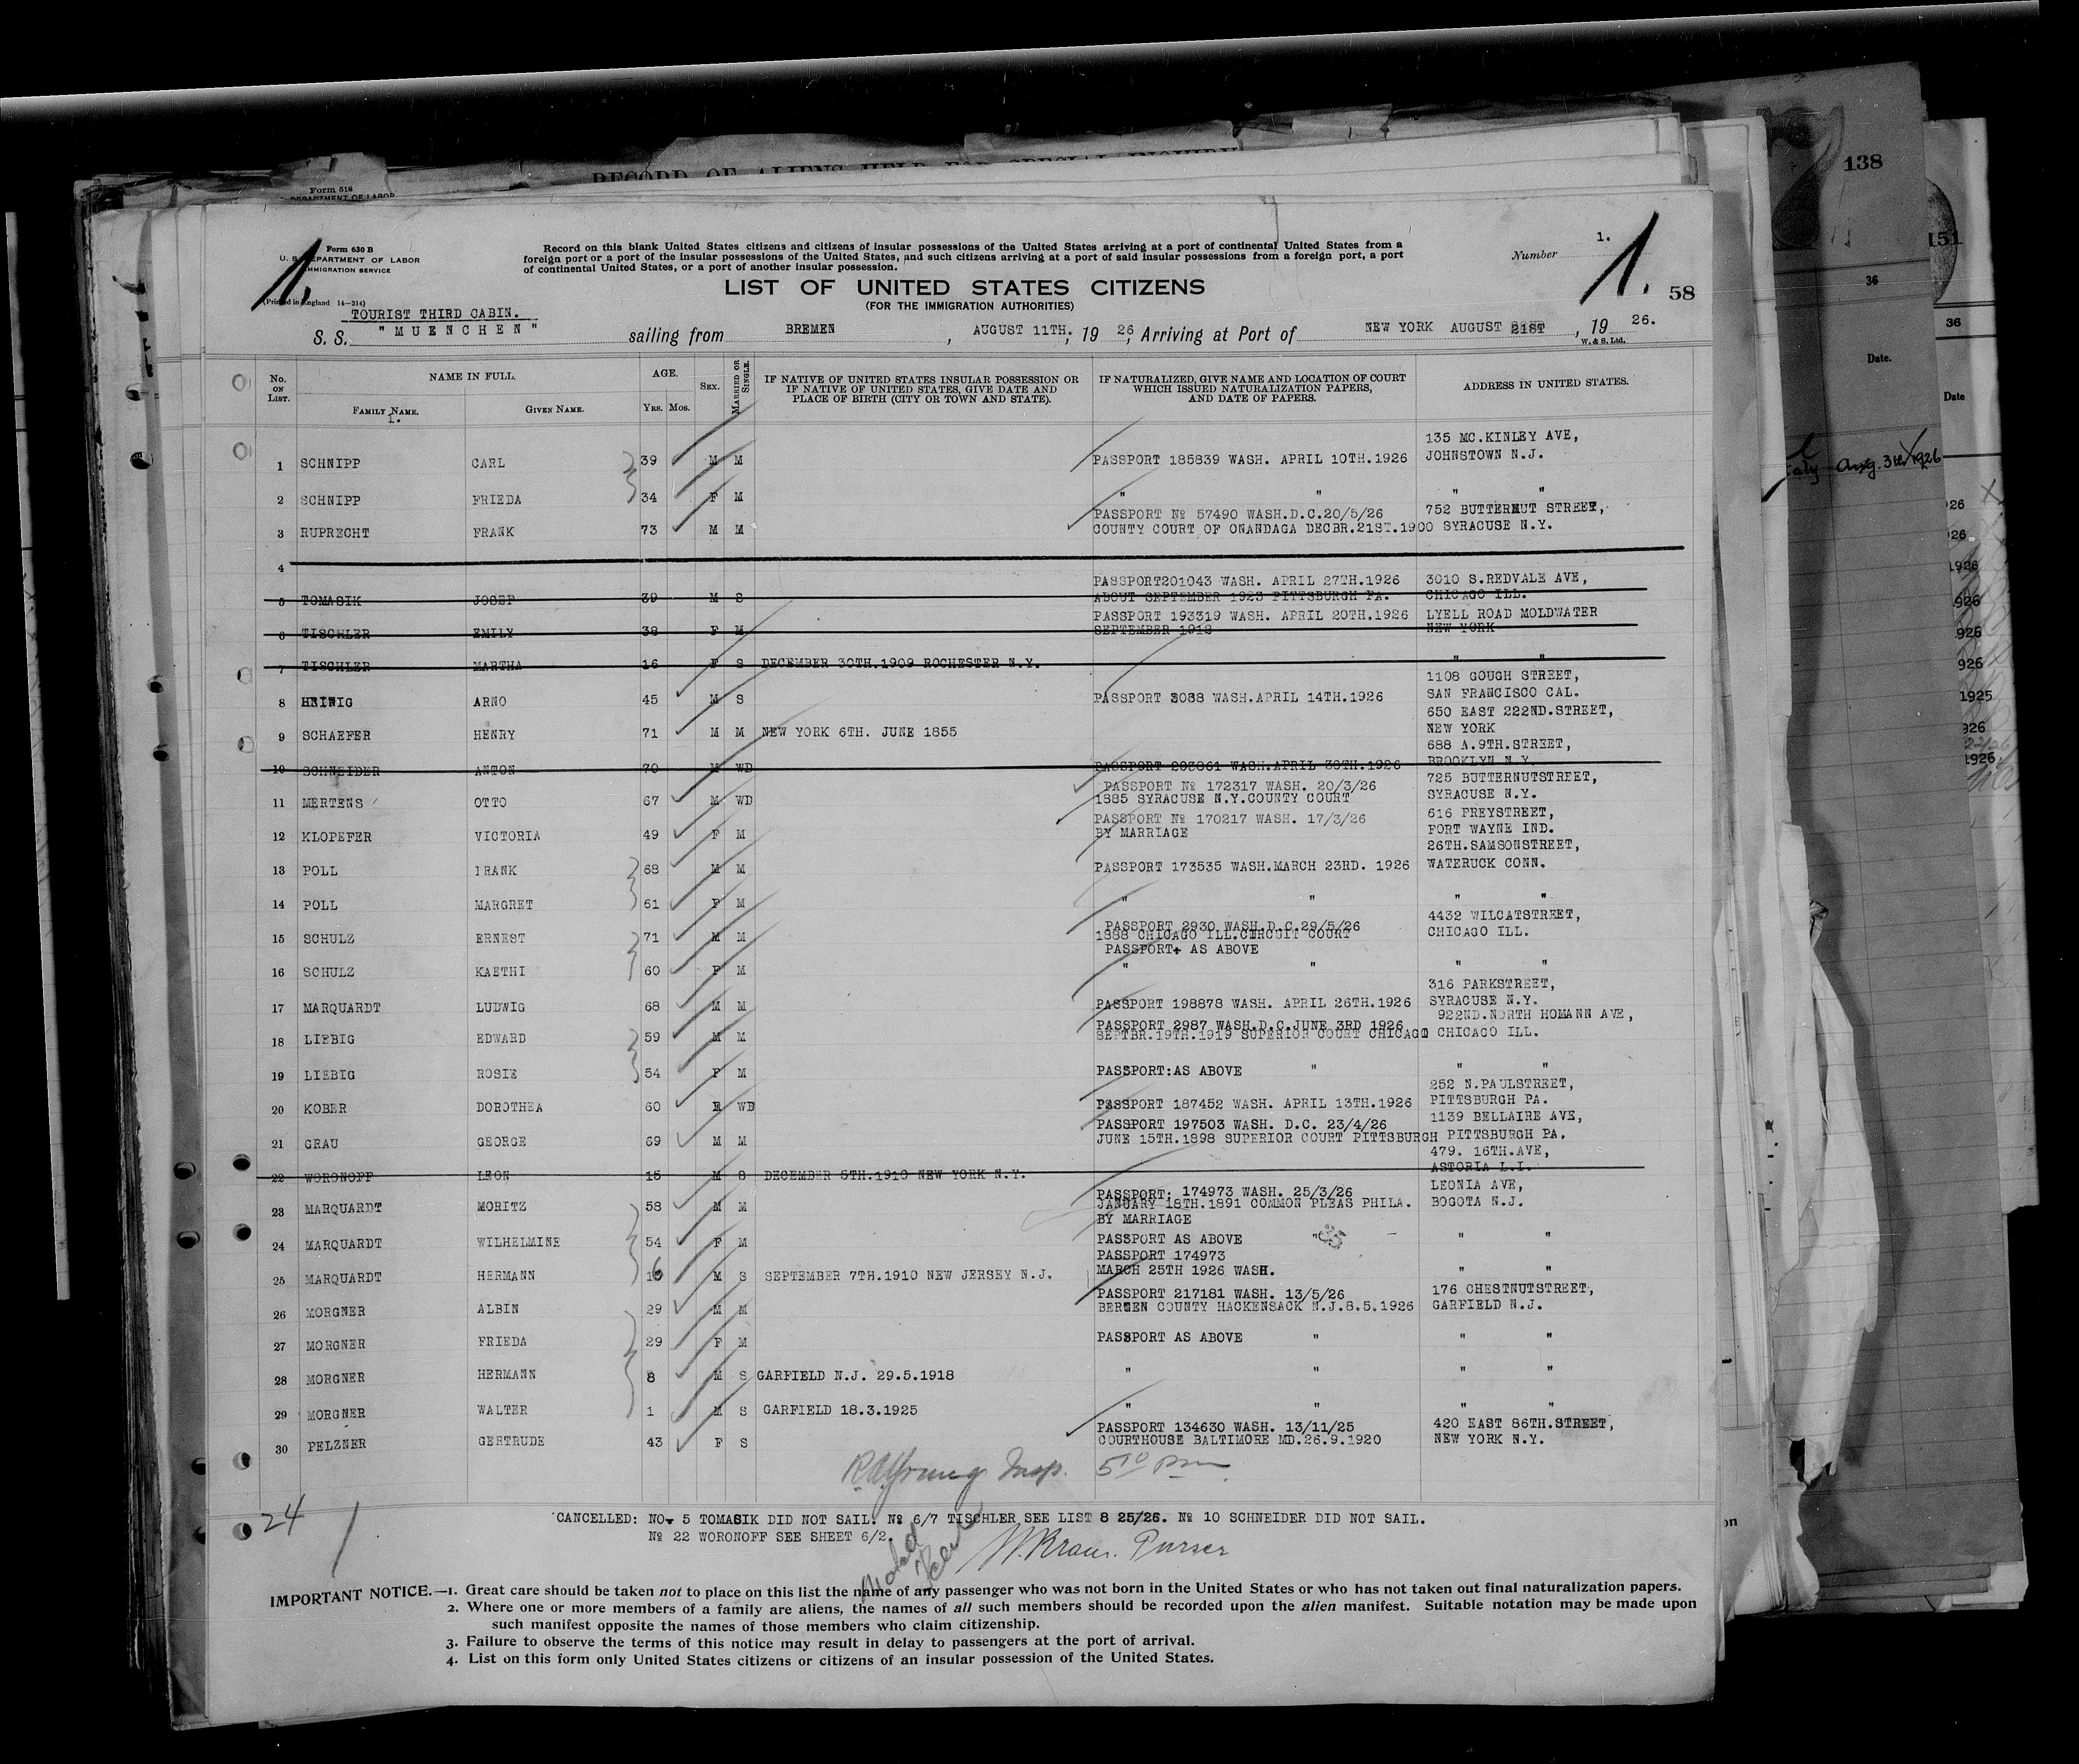 138
151
36
36
Date.
Date
RECORD OF ALIENS HELD FOR SPECIAL INQUIRY
Form 518
DEPARTMENT OF LABOR
Form 630 B
U. S. DEPARTMENT OF LABOR
IMMIGRATION SERVICE
(Printed in England 14—214)
1.
Record on this blank United States citizens and citizens of insular possessions of the United States arriving at a port of continental United States from a
foreign port or a port of the insular possessions of the United States, and such citizens arriving at a port of said insular possessions from a foreign port, a port
of continental United States, or a port of another insular possession.
Number 1.
1.
58
LIST OF UNITED STATES CITIZENS
(FOR THE IMMIGRATION AUTHORITIES)
TOURIST THIRD CABIN.
S. S. "MUENCHEN" sailing from BREMEN, AUGUST 11TH. 1926, Arriving at Port of NEW YORK AUGUST 21ST, 1926.
W. & S. Ltd.
No. ON LIST.
NAME IN FULL.
FAMILY NAME.
1.
GIVEN NAME.
AGE.
YRS. MOS.
SEX.
MARRIED OR SINGLE.
IF NATIVE OF UNITED STATES INSULAR POSSESSION OR
IF NATIVE OF UNITED STATES, GIVE DATE AND
PLACE OF BIRTH (CITY OR TOWN AND STATE).
IF NATURALIZED, GIVE NAME AND LOCATION OF COURT
WHICH ISSUED NATURALIZATION PAPERS,
AND DATE OF PAPERS.
ADDRESS IN UNITED STATES.
135 MC.KINLEY AVE,
1 SCHNIPP CARL 39 M M PASSPORT 185839 WASH. APRIL 10TH.1926 JOHNSTOWN N.J.
2 SCHNIPP FRIEDA 34 F M " " " "
PASSPORT № 57490 WASH.D.C.20/5/26 752 BUTTERNUT STREET,
3 RUPRECHT FRANK 73 M M COUNTY COURT OF ONANDAGA DECBR.21ST.1900 SYRACUSE N.Y.
4
PASSPORT201043 WASH. APRIL 27TH.1926 3010 S.REDVALE AVE,
5 TOMASIK JOSEF 39 M S ABOUT SEPTEMBER 1923 PITTSBURGH PA. CHICAGO ILL.
PASSPORT 193319 WASH. APRIL 20TH.1926 LYELL ROAD MOLDWATER
6 TISCHLER EMILY 38 F M SEPTEMBER 1912 NEW YORK
7 TISCHLER MARTHA 16 F S DECEMBER 30TH.1909 ROCHESTER N.Y. " "
1108 GOUGH STREET,
8 HEINIG ARNO 45 M S PASSPORT 3088 WASH.APRIL 14TH.1926 SAN FRANCISCO CAL.
650 EAST 222ND.STREET,
9 SCHAEFER HENRY 71 M M NEW YORK 6TH. JUNE 1855 NEW YORK
688 A.9TH.STREET,
10 SCHNEIDER ANTON 70 M WD PASSPORT 203861 WASH.APRIL 30TH.1926 BROOKLYN N.Y.
PASSPORT № 172317 WASH. 20/3/26 725 BUTTERNUTSTREET,
11 MERTENS OTTO 67 M WD 1885 SYRACUSE N.Y.COUNTY COURT SYRACUSE N.Y.
PASSPORT № 170217 WASH. 17/3/26 616 FREYSTREET,
12 KLOPEFER VICTORIA 49 F M BY MARRIAGE FORT WAYNE IND.
26TH.SAMSONSTREET,
13 POLL FRANK 68 M M PASSPORT 173535 WASH.MARCH 23RD. 1926 WATERUCK CONN.
14 POLL MARGRET 61 F M " " " "
PASSPORT 2930 WASH.D.C.29/5/26 4432 WILCATSTREET,
15 SCHULZ ERNEST 71 M M 1888 CHICAGO ILL.CIRCUIT COURT CHICAGO ILL.
PASSPORT: AS ABOVE
16 SCHULZ KAETHI 60 F M " " " "
316 PARKSTREET,
17 MARQUARDT LUDWIG 68 M M PASSPORT 198878 WASH. APRIL 26TH.1926 SYRACUSE N.Y.
PASSPORT 2987 WASH.D.C.JUNE 3RD 1926 922ND.NORTH HOMANN AVE,
18 LIEBIG EDWARD 59 M M SEPTBR.19TH.1919 SUPERIOR COURT CHICAGO CHICAGO ILL.
19 LIEBIG ROSIE 54 F M PASSPORT:AS ABOVE " " "
252 N.PAULSTREET,
20 KOBER DOROTHEA 60 F WD PASSPORT 187452 WASH. APRIL 13TH.1926 PITTSBURGH PA.
PASSPORT 197503 WASH. D.C. 23/4/26 1139 BELLAIRE AVE,
21 GRAU GEORGE 69 M M JUNE 15TH.1898 SUPERIOR COURT PITTSBURGH PITTSBURGH PA.
479. 16TH.AVE,
22 WORONOFF LEON 15 M S DECEMBER 5TH.1910 NEW YORK N.Y. ASTORIA L.I.
PASSPORT: 174973 WASH. 25/3/26 LEONIA AVE,
23 MARQUARDT MORITZ 58 M M JANUARY 18TH.1891 COMMON PLEAS PHILA. BOGOTA N.J.
BY MARRIAGE
24 MARQUARDT WILHELMINE 54 F M PASSPORT AS ABOVE " " "
PASSPORT 174973
25 MARQUARDT HERMANN 16 M S SEPTEMBER 7TH.1910 NEW JERSEY N.J. MARCH 25TH 1926 WASH. " "
PASSPORT 217181 WASH. 13/5/26 176 CHESTNUTSTREET,
26 MORGNER ALBIN 29 M M BERGEN COUNTY HACKENSACK N.J.8.5.1926 GARFIELD N.J.
27 MORGNER FRIEDA 29 F M PASSPORT AS ABOVE " " "
28 MORGNER HERMANN 8 M S GARFIELD N.J. 29.5.1918 " " " "
29 MORGNER WALTER 1 M S GARFIELD 18.3.1925 " " " "
PASSPORT 134630 WASH. 13/11/25 420 EAST 86TH.STREET,
30 PELZNER GERTRUDE 43 F S COURTHOUSE BALTIMORE MD.26.9.1920 NEW YORK N.Y.
R.A. Young Insp. 5 10 pm
24 /
CANCELLED: NO. 5 TOMASIK DID NOT SAIL. № 6/7 TISCHLER SEE LIST 8 25/26. № 10 SCHNEIDER DID NOT SAIL.
№ 22 WORONOFF SEE SHEET 6/2.
W. Kraus. Purser
IMPORTANT NOTICE.—1. Great care should be taken not to place on this list the name of any passenger who was not born in the United States or who has not taken out final naturalization papers.
2. Where one or more members of a family are aliens, the names of all such members should be recorded upon the alien manifest. Suitable notation may be made upon
such manifest opposite the names of those members who claim citizenship.
3. Failure to observe the terms of this notice may result in delay to passengers at the port of arrival.
4. List on this form only United States citizens or citizens of an insular possession of the United States.